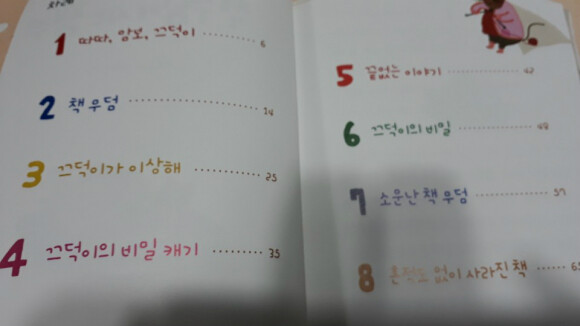 차례
1 따따, 얌보, 끄덕이 6
2 책 우덤 14
3 끄덕이가 이상해 25
4 끄덕이의 비밀 캐기 35
5 끝없는 이야기 42
6 끄덕이의 비밀 48
7 소문난 책 우덤 57
8 흔적도 없이 사라진 책